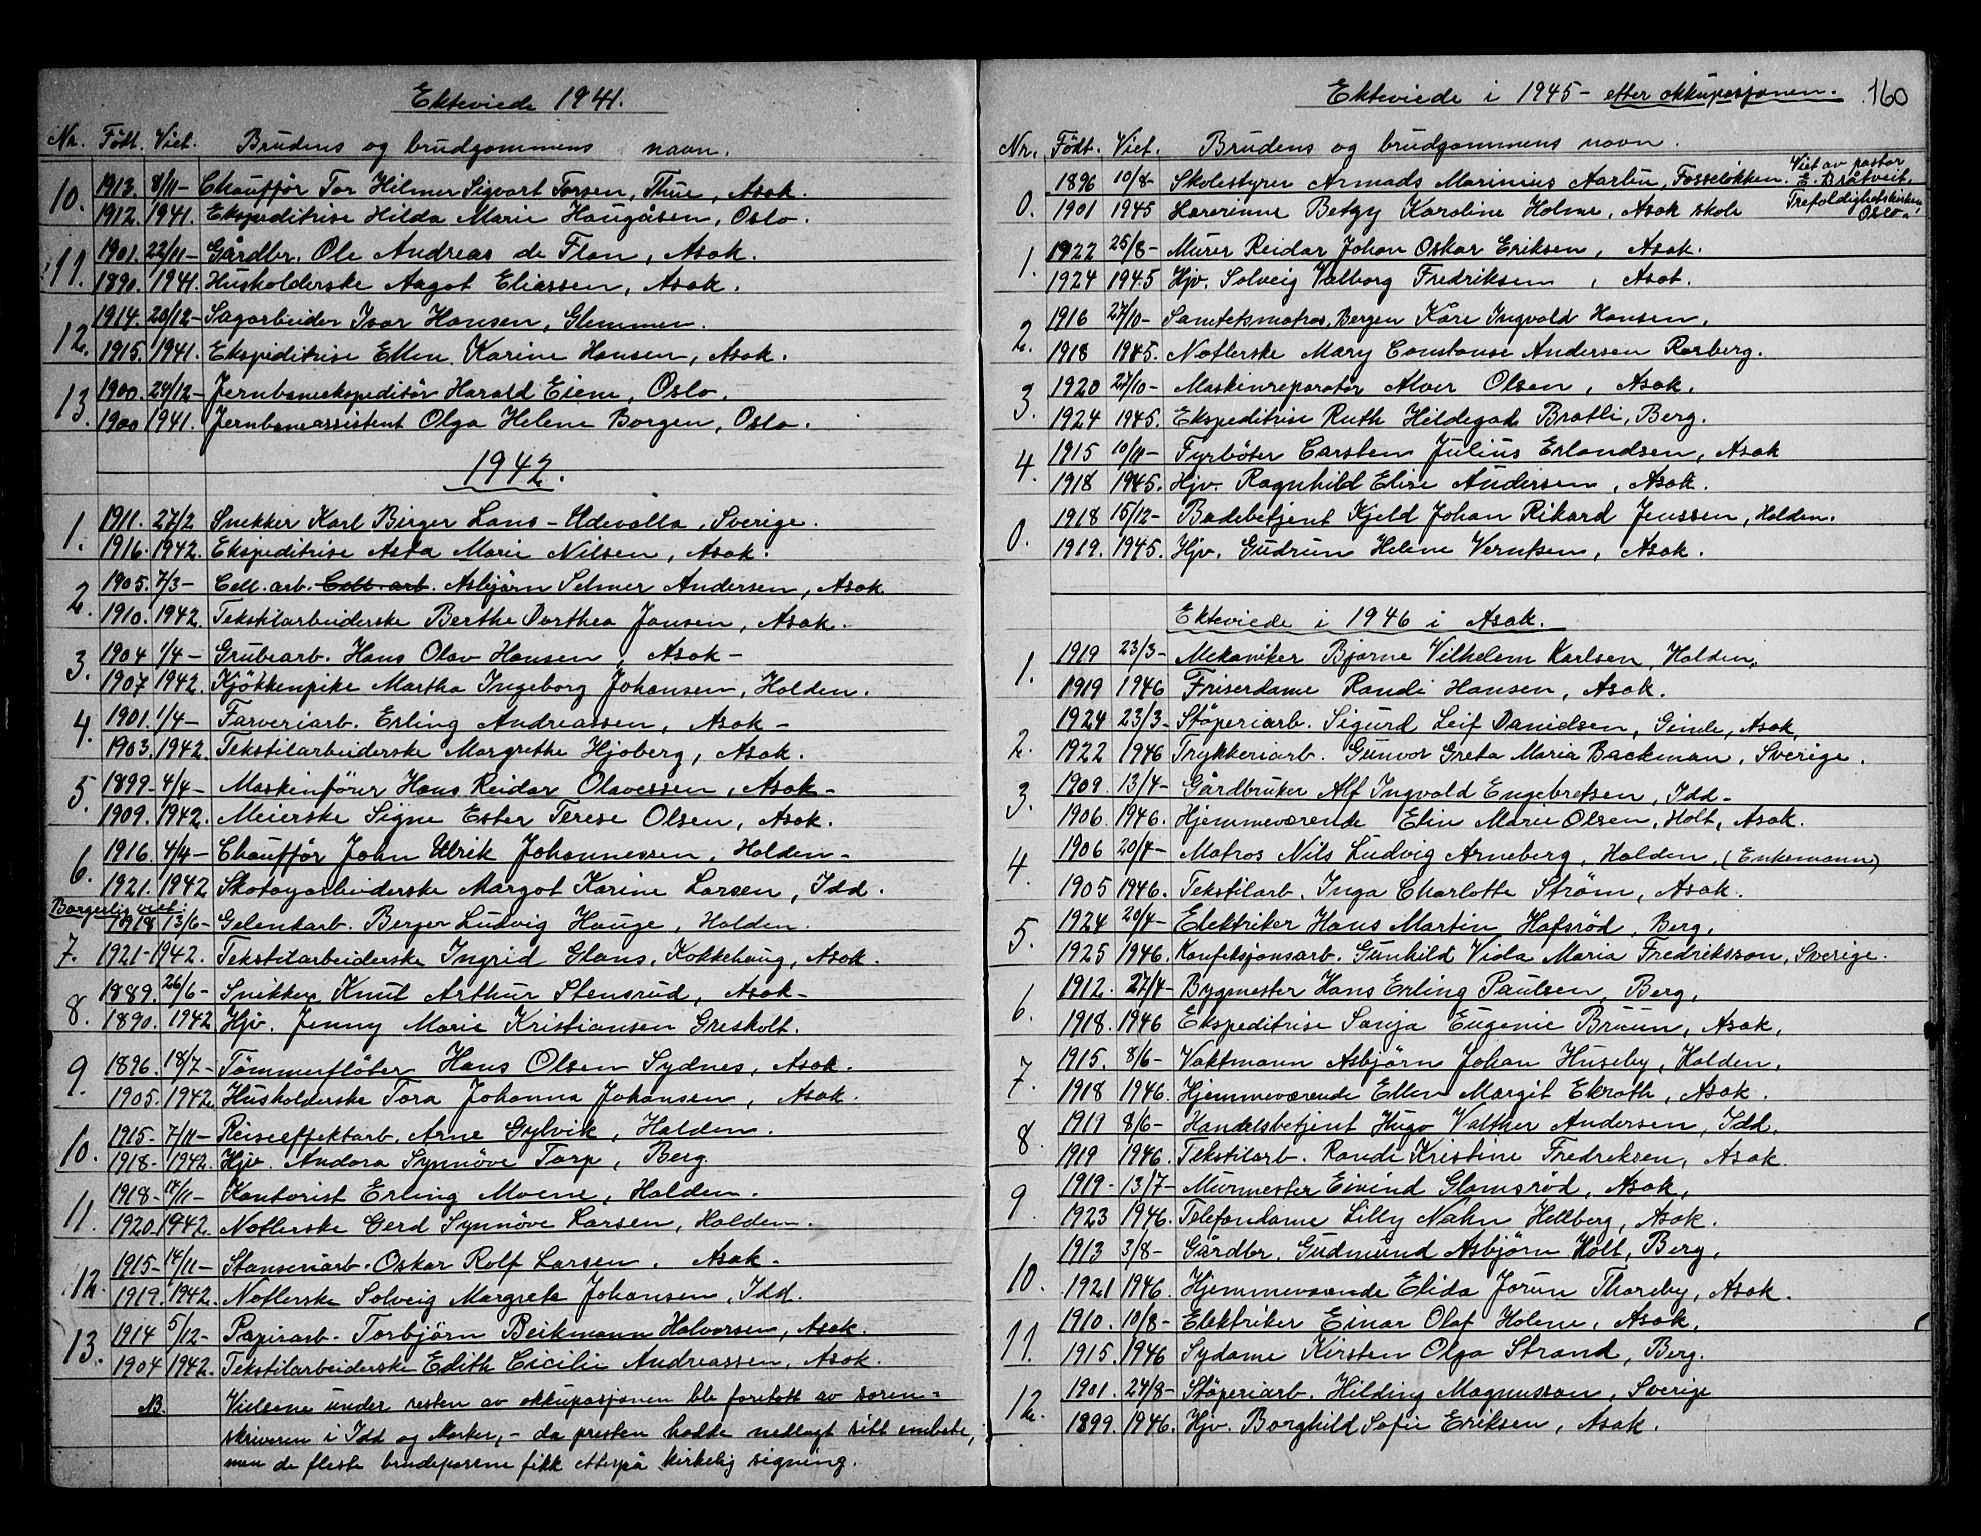 Ekteviede 1941.
Nr. Født. Viet. Brudens og brudgommens navn.
10. 1913. 8/11- Chauffør Tor Hilmer Sigvart Torsen, Thue, Asak.
1912. 1941. Ekspeditrise Hilda Marie Haugåsen, Oslo.
11. 1901. 22/11- Gårdbr. Ole Andreas de Flon, Asak.
1890. 1941. Husholderske Aagot Eliassen, Asak.
12. 1914. 20/12- Sagarbeider Ivar Hansen, Glemmen.
1915. 1941. Ekspeditrise Ellen Karine Hansen, Asak.
13. 1900. 24/12- Jernbaneekspeditør Harald Eiene, Oslo.
1900 1941. Jernbaneassistent Olga Helene Borgen, Oslo.
1942.
1. 1911. 27/2 Snekker Karl Birger Lans - Udevalla, Sverige.
1916. 1942. Ekspeditrise Asta Marie Nilsen, Asak.
2. 1905. 7/3- Cell. arb. Cell. arb. Asbjørn Selmer Andersen, Asak
1910. 1942. Tekstilarbeiderske Berthe Dorthea Jansen, Asak.
3. 1904 1/4- Grubearb. Hans Olav Hansen, Asak -
1907 1942. Kjøkkenpike Martha Ingeborg Johansen, Halden.
4. 1901. 1/4- Farveriarb. Erling Andreassen, Asak -
1903. 1942. Tekstilarbeiderske Margrethe Hjøberg, Asak.
5. 1899- 4/4- Maskinfører Hans Reidar Olavessen, Asak -
1909. 1942. Meierske Signe Ester Terese Olsen, Asak.
6. 1916. 4/4- Chauffør John Ulrik Johannessen, Halden -
1921. 1942 Skotøyarbeiderske Margot Karine Larsen, Idd.
Borgerlig viet:
7. 1918 13/6- Gelenkarb. Berger Ludvig Hauge, Halden.
1921- 1942. Tekstilarbeiderske Ingrid Glans, Kokkehaug, Asak.
8. 1889. 26/6- Snikker Knut Arthur Stensrud, Asak -
1890. 1942 Hjv. Jenny Marie Kristiansen Greskolt.
9. 1896. 18/7- Tømmerfløter Hans Olsen Sydnes, Asak.
1905. 1942. Husholderske Tora Johanna Johansen, Asak.
10. 1915- 7/11- Reiseeffektarb. Arne Gylvik, Halden.
1918- 1942. Hjv. Andora Synnøve Torp, Berg.
11. 1918- 14/11- Kontorist Erling Moene, Halden.
1920 1942. Notlerske Gerd Synnøve Larsen, Halden.
12. 1915- 14/11- Stanseriarb. Oskar Rolf Larsen, Asak.
1919. 1942. Notlerske Solveig Margrete Johansen, Idd.
13. 1914 5/12- Papirarb. Torbjørn Beikmann Halvorsen, Asak.
1904 1942. Tekstilarbeiderske Edith Cicilie Andreassen, Asak.
NB. Vielsene under resten av okkupasjonen ble foretatt av soren-
skriveren i Idd og Marker, - da presten hadde nedlagt sitt embete,
men de fleste brudeparene fikk etterpå kirkelig signing.
Ekteviede i 1945 - etter okkupasjonen. 160
Nr. Født. Viet. Brudens og brudgommens navn.
0. 1896 10/8- Skolestyrer Armads Marinius Aarbu, Fosseløkken. Viet av pastor E. Bråtveit,
1901 1945 Lærerinne Betzy Karoline Holme, Asak skole Trefoldighetskirken, Oslo.
1. 1922 25/8- Murer Reidar Johan Oskar Eriksen, Asak.
1924 1945 Hjv. Solveig Valborg Fredriksen, Asak.
2. 1916 27/10- Samtekmatros, Bergen Kåre Ingvald Hansen,
1918 1945. Notlerske Mary Constanse Andersen Rosberg.
3. 1920 27/10- Maskinreparatør Alver Olsen, Asak.
1924 1945. Ekspeditrise Ruth Hildegad Bratli, Berg.
4. 1915 10/11- Fyrbøter Carsten Julius Erlandsen, Asak
1918 1945. Hjv. Ragnhild Elise Andersen, Asak.
0. 1918 15/12- Badebetjent Kjeld Johan Rikard Jenssen, Halden.
1919. 1945. Hjv. Gudrun Helene Berntsen, Asak.
Ekteviede i 1946 i Asak.
1. 1919 23/3- Mekaniker Bjarne Vilhelm Karlsen, Halden,
1919 1946 Friserdame Randi Hansen, Asak.
2. 1924 23/3- Støperiarb. Sigurd Leif Danielsen, Ginde, Asak,
1922 1946 Trykkeriarb. Gunvor Greta Maria Backman, Sverige.
3. 1909. 13/4- Gårdbruker Alf Ingvald Engebretsen, Idd -
1906. 1946. Hjemmeværende Elin Marie Olsen, Holt, Asak.
4. 1906 20/4- Matros Nils Ludvig Arneberg, Halden, (Enkemann)
1905 1946. Tekstilarb. Inga Charlotte Strøm, Asak.
5. 1924 20/4- Elektriker Hans Martin Hafsrød, Berg,
1925 1946. Konfeksjonsarb. Gunhild Viola Maria Fredriksson, Sverige.
6. 1912. 27/4- Bygmester Hans Erling Paulsen, Berg,
1918. 1946 Ekspeditrise Sonja Eugenie Bruun, Asak,
7. 1915. 8/6- Vaktmann Asbjørn Johan Huseby, Halden,
1918 1946. Hjemmeværende Ellen Margit Ekroth, Asak.
8. 1919 8/6- Handelsbetjent Hugo Valther Andersen, Idd,
1919 1946. Tekstilarb. Randi Kristine Fredriksen, Asak.
9. 1919- 13/7- Murmester Eivind Glomsrød, Asak,
1923 1946. Telefondame Lilly Nahn Hellberg, Asak.
10. 1913 3/8- Gårdbr. Gudmund Asbjørn Holt, Berg,
1921 1946. Hjemmeværende Elida Jorun Thoreby, Asak.
11. 1910. 10/8- Elektriker Einar Olaf Holene, Asak,
1915. 1946 Sydame Kirsten Olga Strand, Berg.
12. 1901. 24/8- Støperiarb. Hilding Magnusson, Sverige
1899. 1946. Hjv. Borghild Sofie Eriksen, Asak.